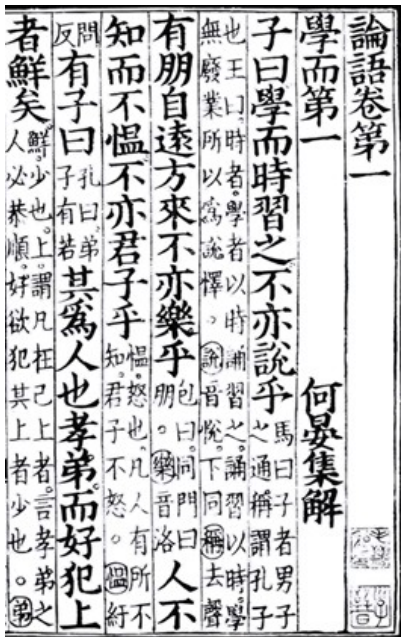 論語卷第一
學而第一　何晏集解
子曰學而時習之不亦說乎馬曰子者男子之通稱謂孔子
也王曰時者。學者以時誦習之。誦習以時。學無廢業所以爲說懌。說音悅。下同稱去聲
有朋自遠方來不亦樂乎包曰。同門曰朋。樂音洛人不
知而不慍不亦君子乎慍。怒也。凡人有所不知。君子不怒。慍紆
問反有子曰孔曰弟子有若其爲人也孝弟而好犯上
者鮮矣鮮。少也。上。謂凡在己上者。言孝弟之人必恭順。好欲犯其上者少也。弟